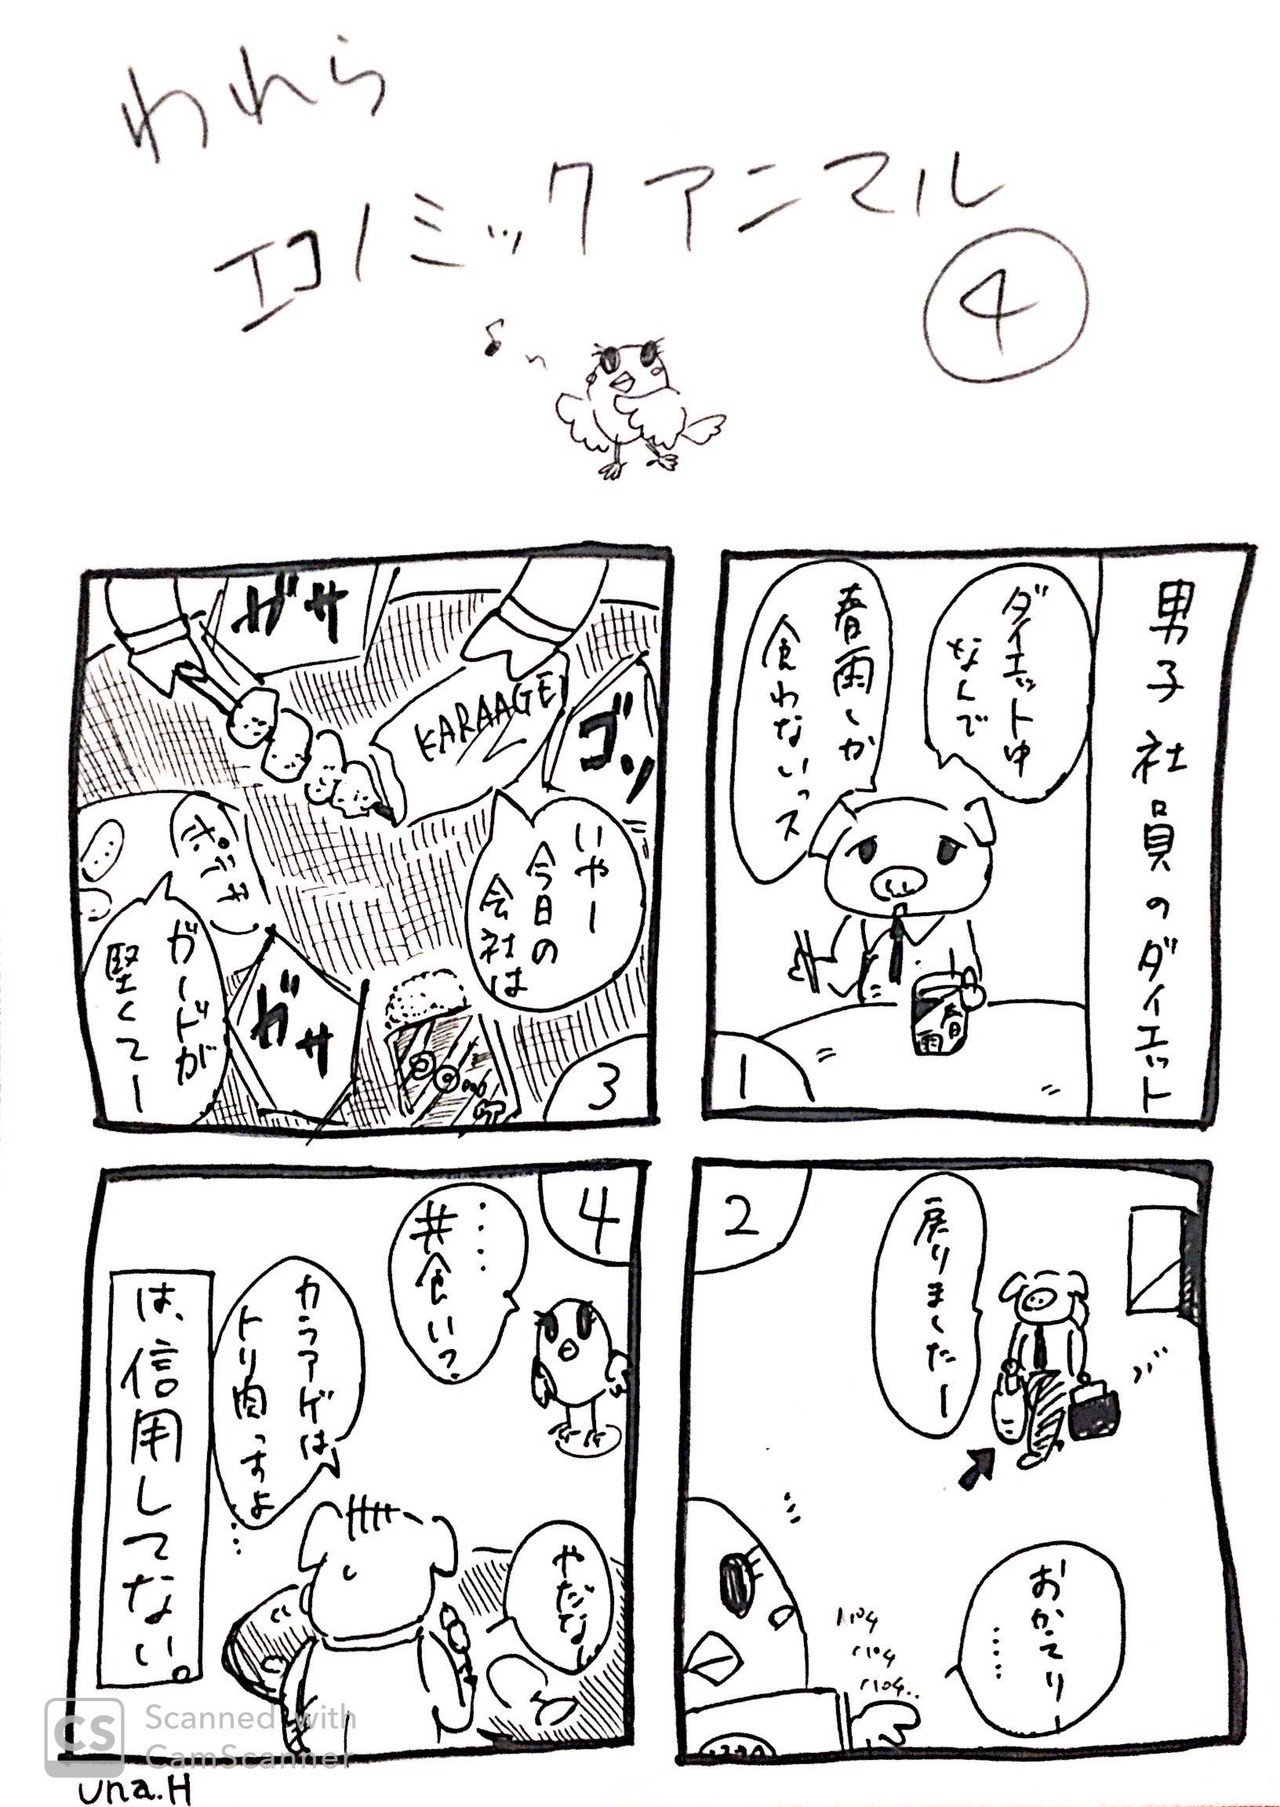 われら
エコノミックアニマル
④
男子社員のダイエット
1
ダイエット中
なんで
春雨しか
食わないっス
2
戻りましたー
おかえりー
‥‥
3
ガサ
ゴソ
KARAAGE
いやー
今日の
会社は
ガードが
堅くてー
ガサ
4
‥‥
共食い?
カラアゲは
トリ肉っすよ
…
やだなー
は、信用してない。
春雨
CS
Scanned with
CamScanner
una.H